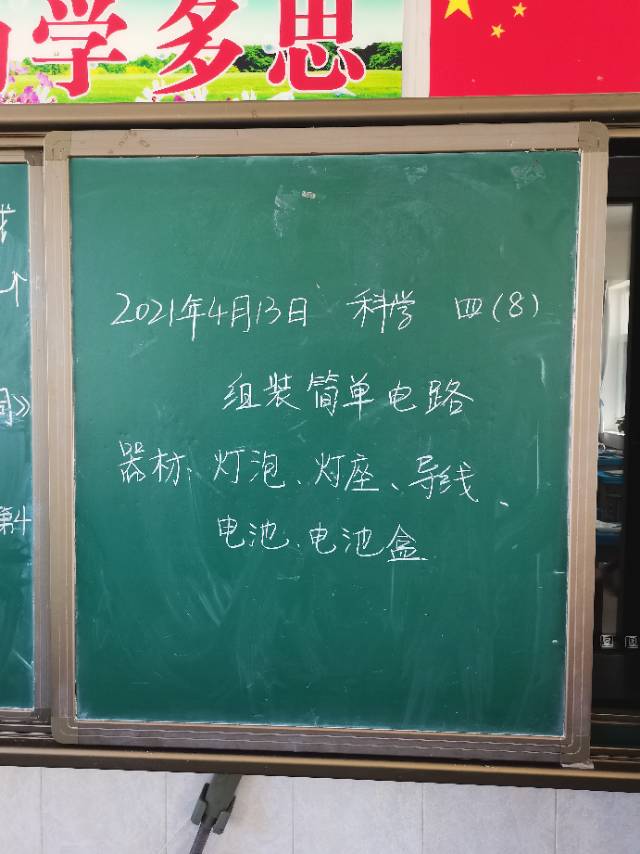 学多思
2021年4月13日 科学 四(8)
组装简单电路
器材、灯泡、灯座、导线、
电池、电池盒
第4